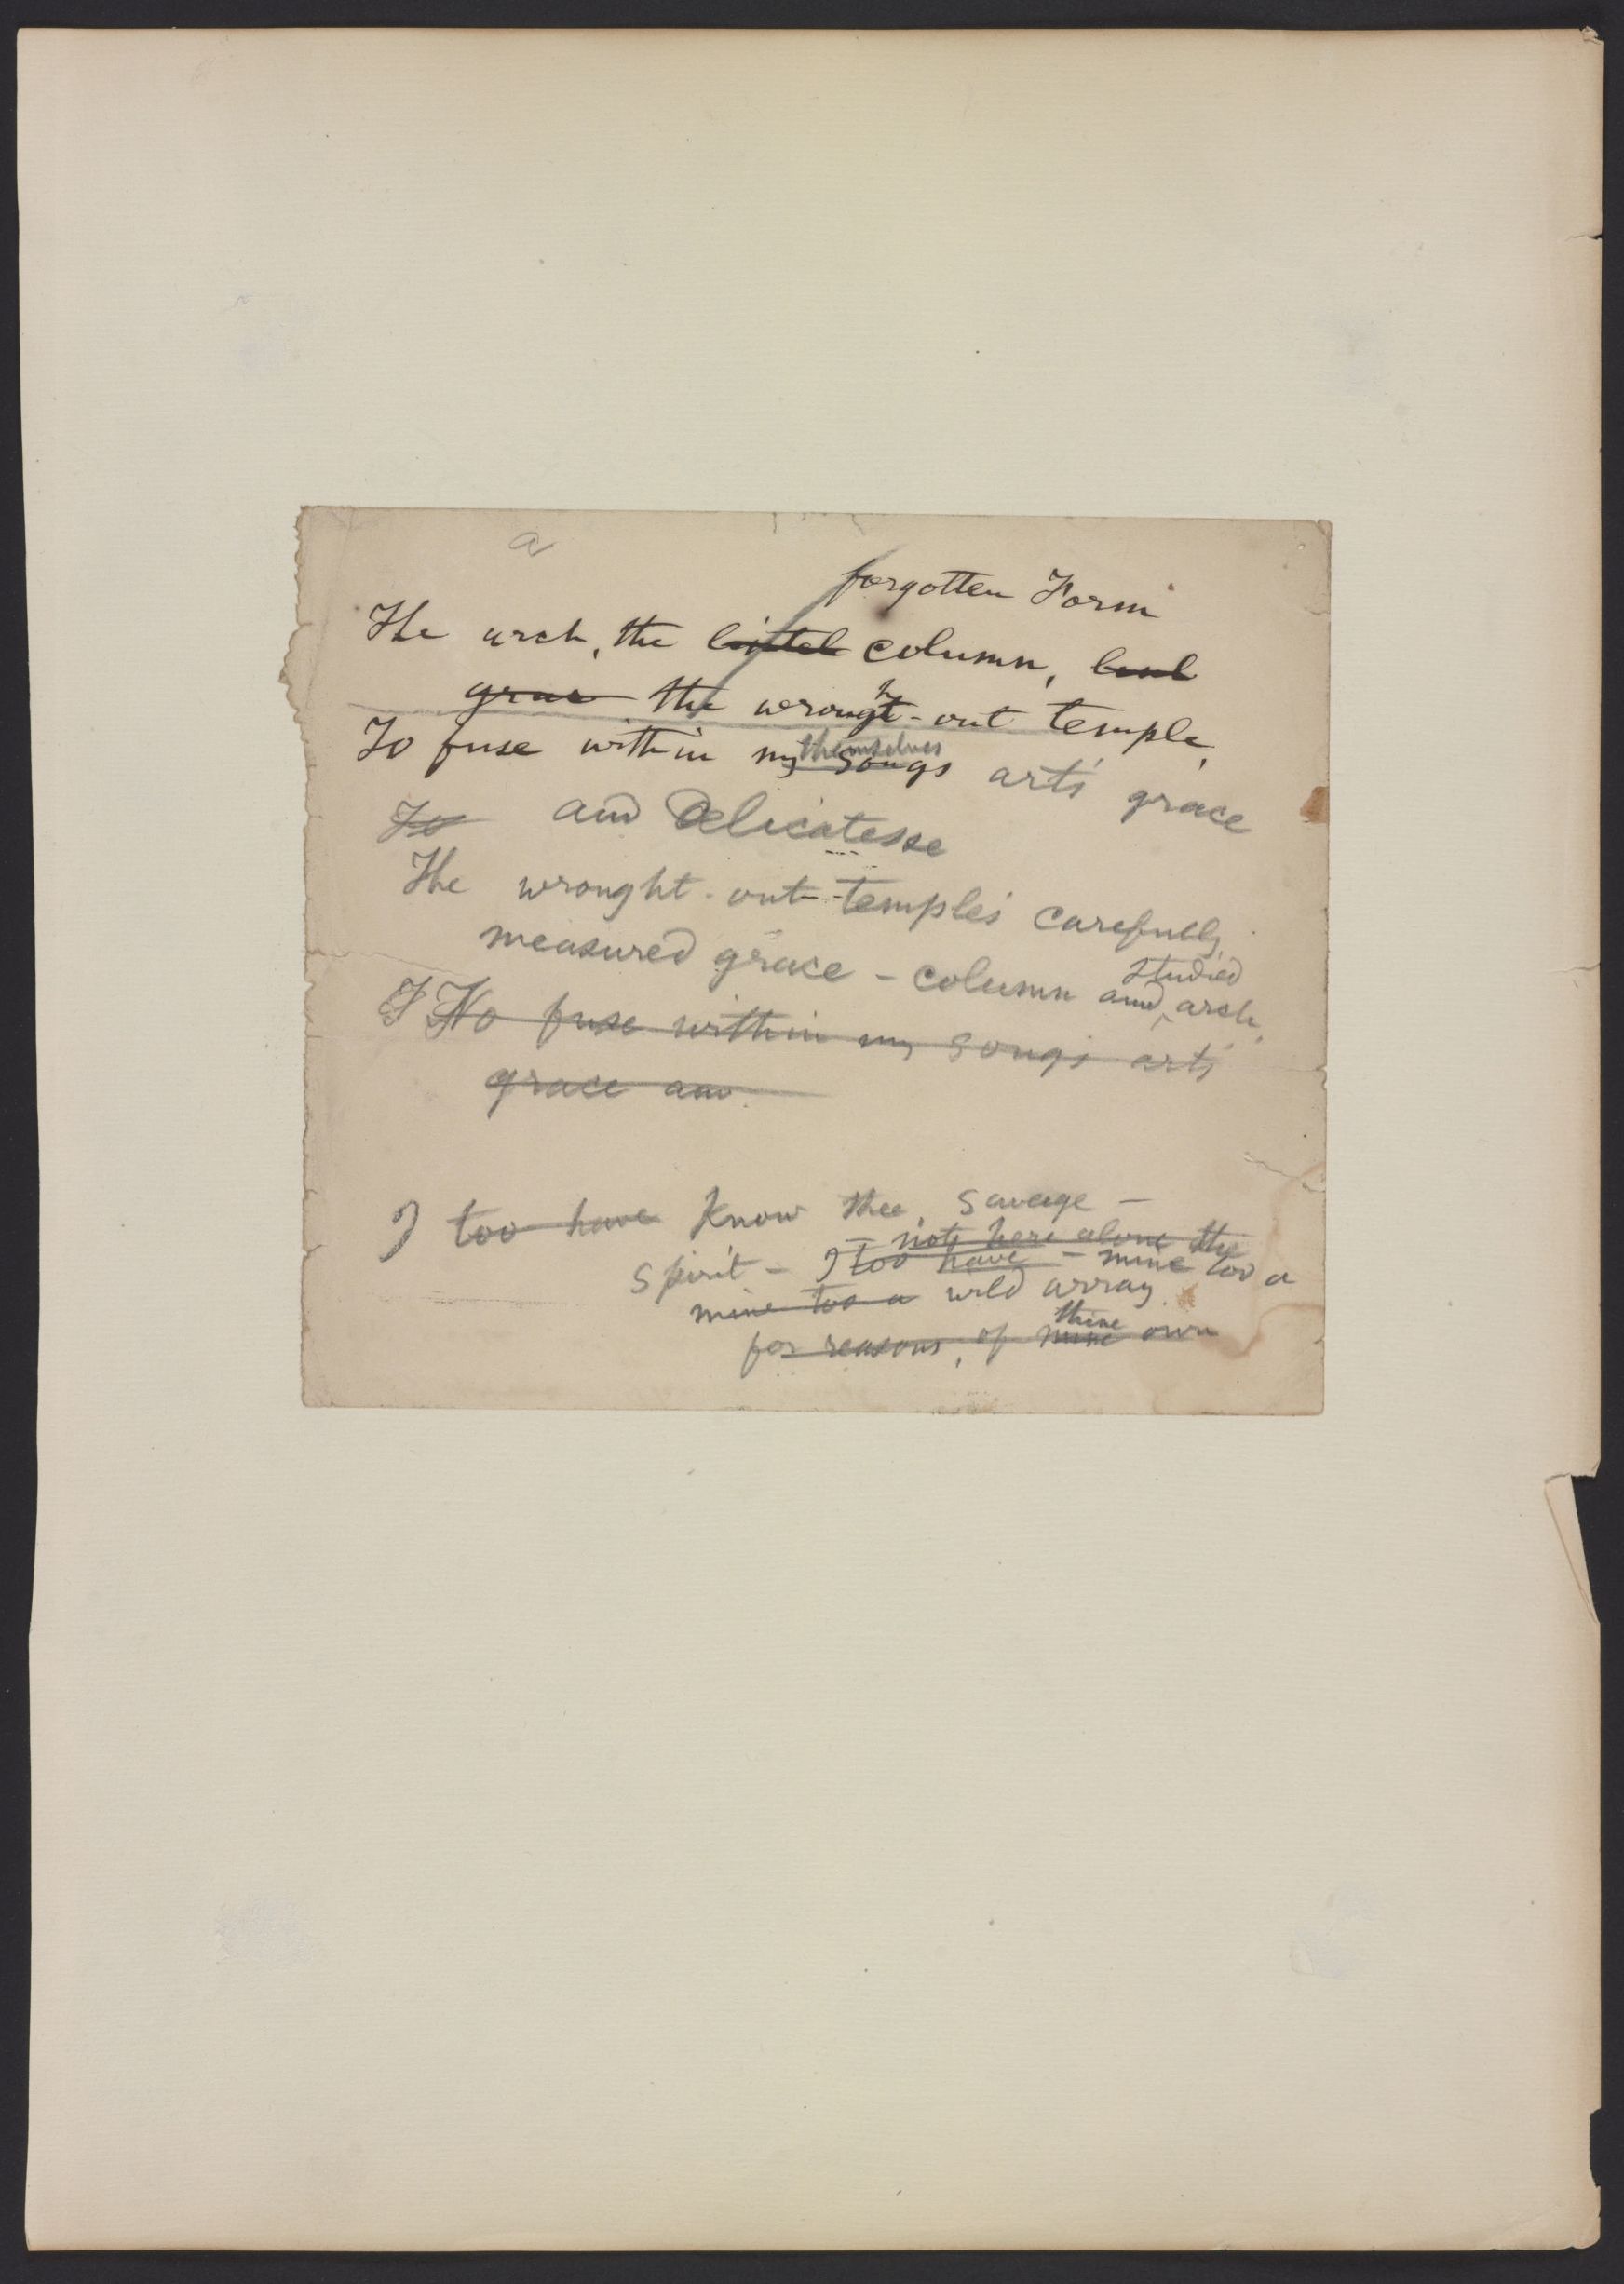 a
forgotten Form
The arch, the lintel column,
the wrought-out temple,
To fuse within my songs themselves art's grace
To and Delicatesse
The wrought-out temple's carefully
measured grace - column and studied arch,
To fuse within my songs art's
grace and
I too have know thee, savage -
- not here alone the
spirit - I too have - mine too a
mine too a wild array
thine
for reasons, of mine own